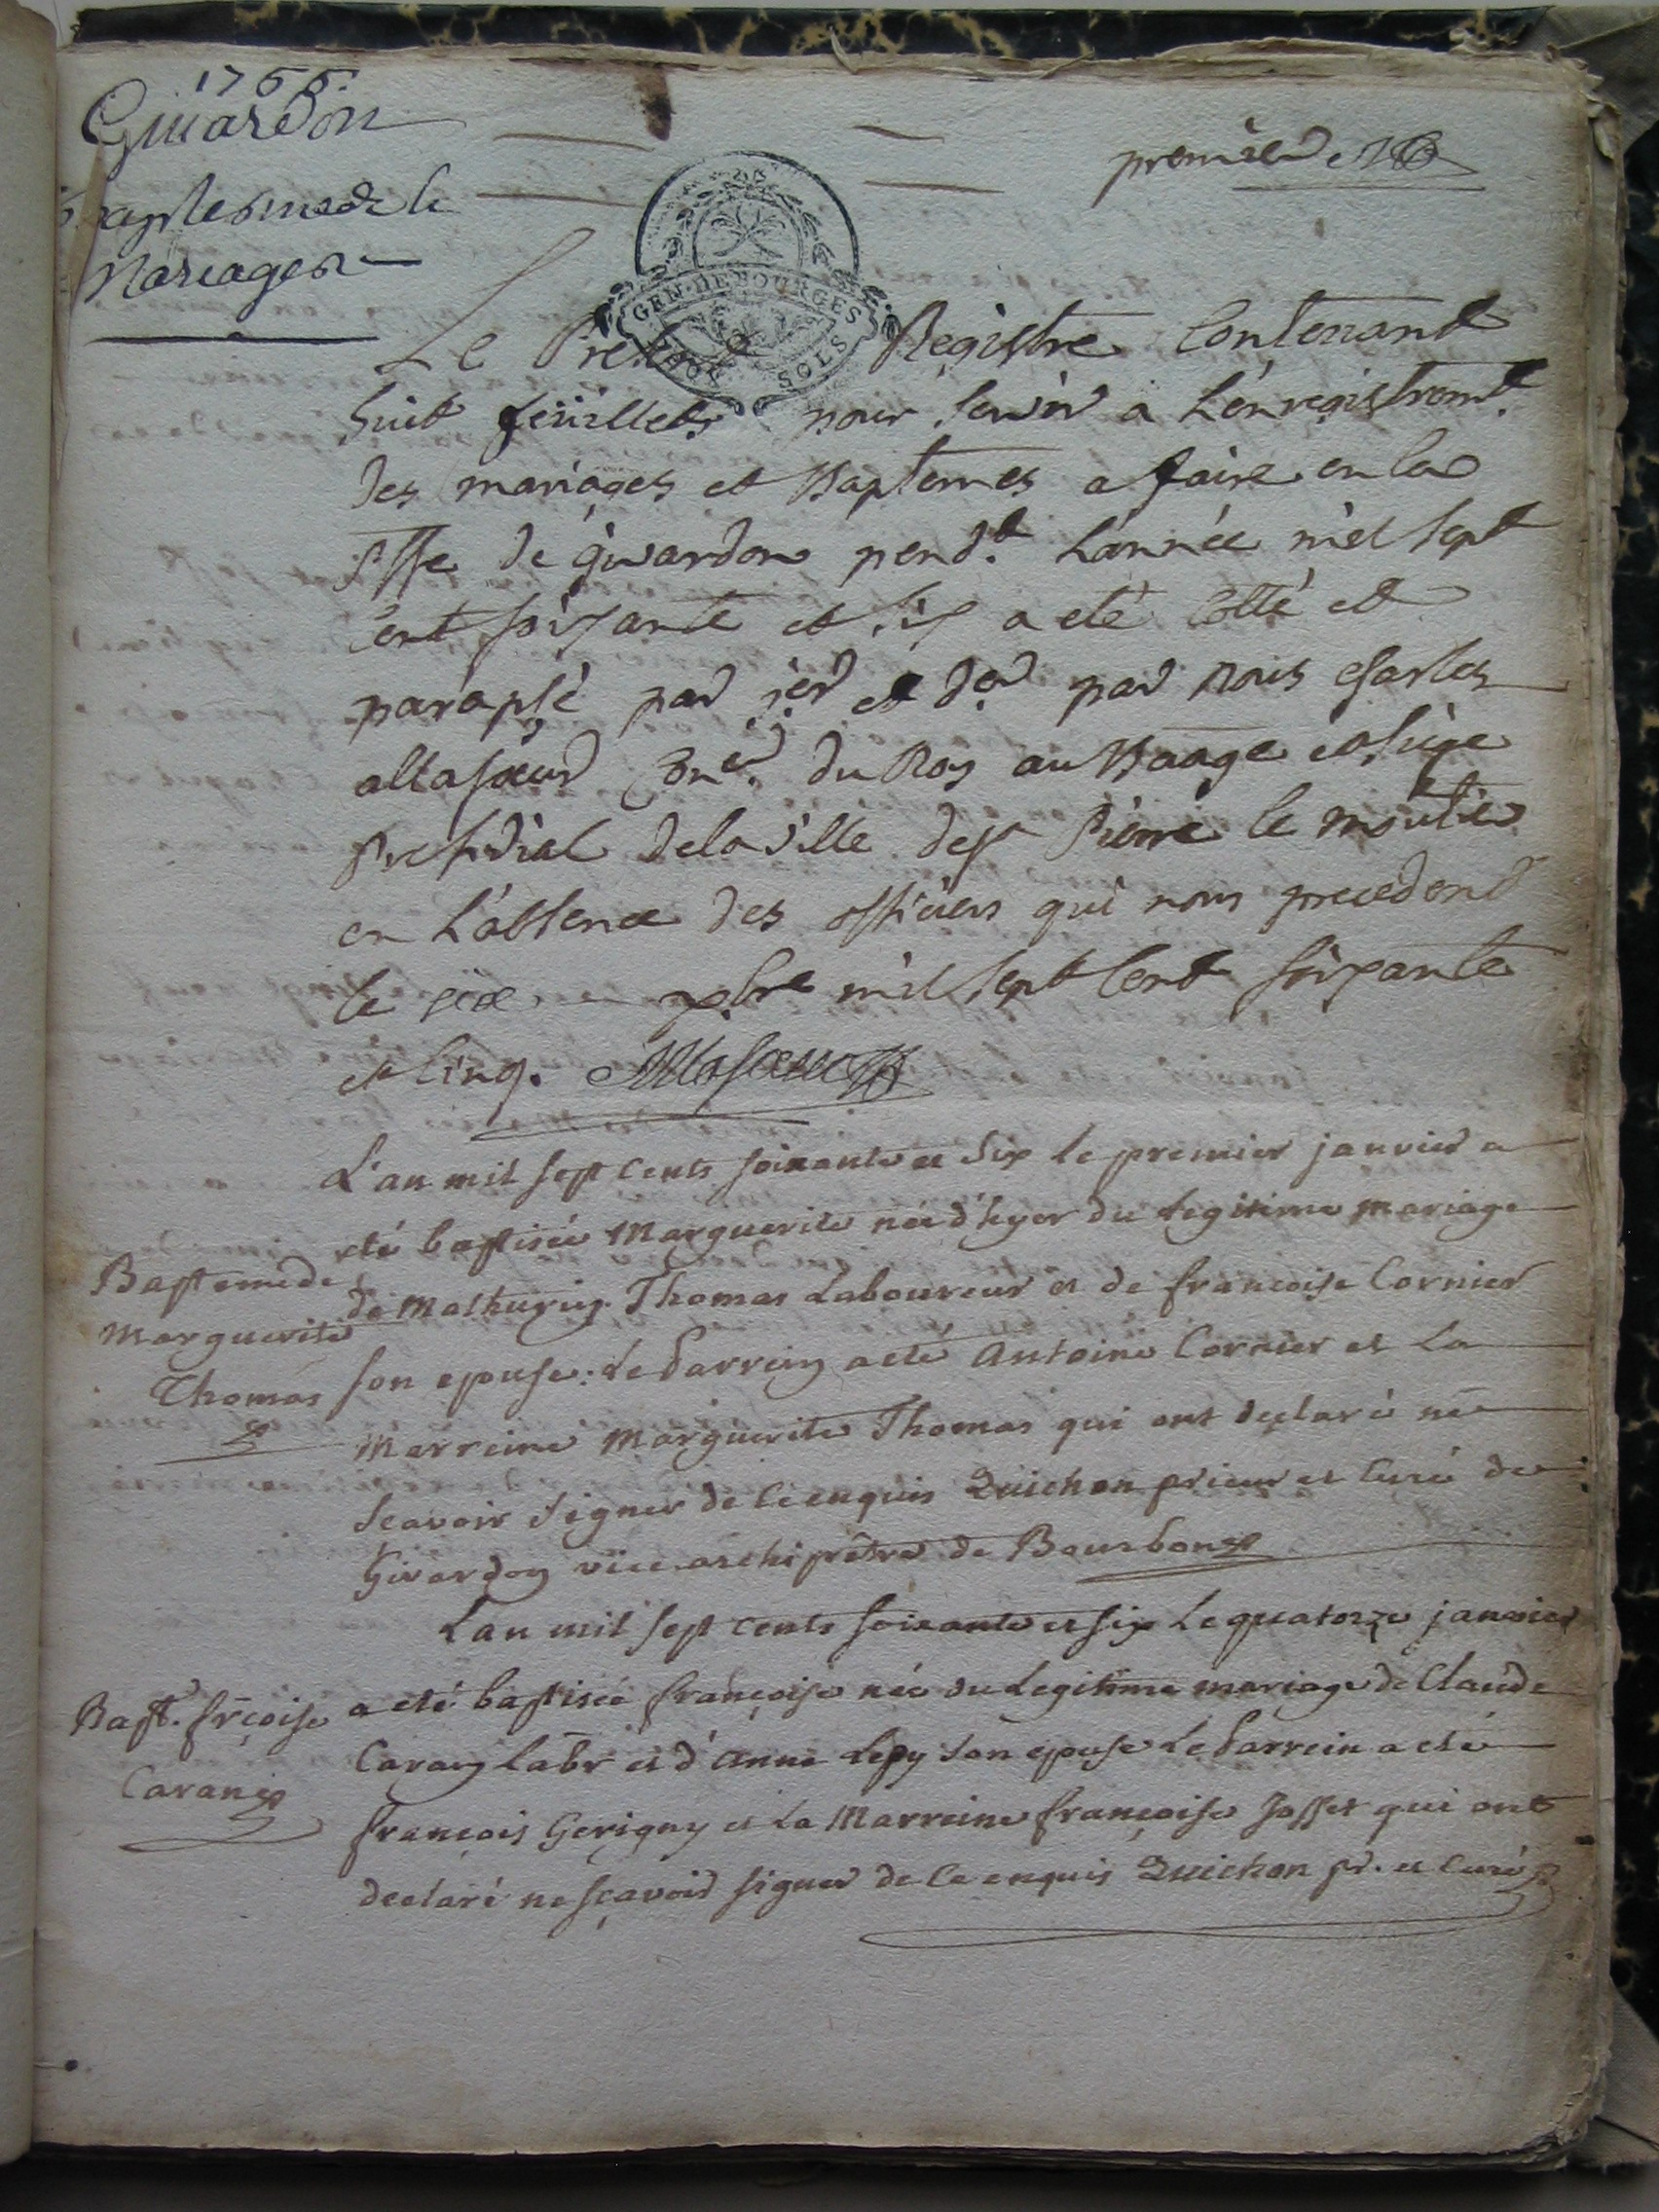 1766.
Givardon
Baptesmes et
Mariages
premier
GEN. DE BOURGES
SOLS
Le Present Registre Contenant
huit feüillets pour servir a L'enregistremt.
des mariages et Baptemes a faire en la
psse de givardon pendt. L'année mil sept
Cent soixante et six a eté Cotté et
paraphé par per et der par nous charles
allasoeur Coner. du Roy au Baage et siege
presidial de la ville de st Pierre le moutier
en L'absence des officiers qui nous precedent
le six xbre mil sept Cent soixante
et Cinq. Allasoeur
L'an mil sept cents soixante et six le premier janvier a
eté baptisée Marguerite née d'hyer du Legitime Mariage
de Mathurin Thomas Laboureur et de francoise Cornier
son epouse: Le Parrein a eté Antoine Cornier et La
Marreine Marguerite Thomas qui ont declaré ne
Scavoir Signer de Ce enquis Quichon prieur et Curé de
Givardon vice archiprêtre de Bourbon
Baptemede
Marguerite
Thomas
L'an mil sept cents soixante et six Le quatorze janvier
a eté baptisée françoise née du Legitime mariage de Claude
Carang Labr et d'Anne Lepy son epouse Le Parrein a eté
françois Gerigny et La Marreine françoise Josset qui ont
declaré ne sçavoir signer de Ce enquis Quichon pr. et Curé
Bapt. frçoise
Carang